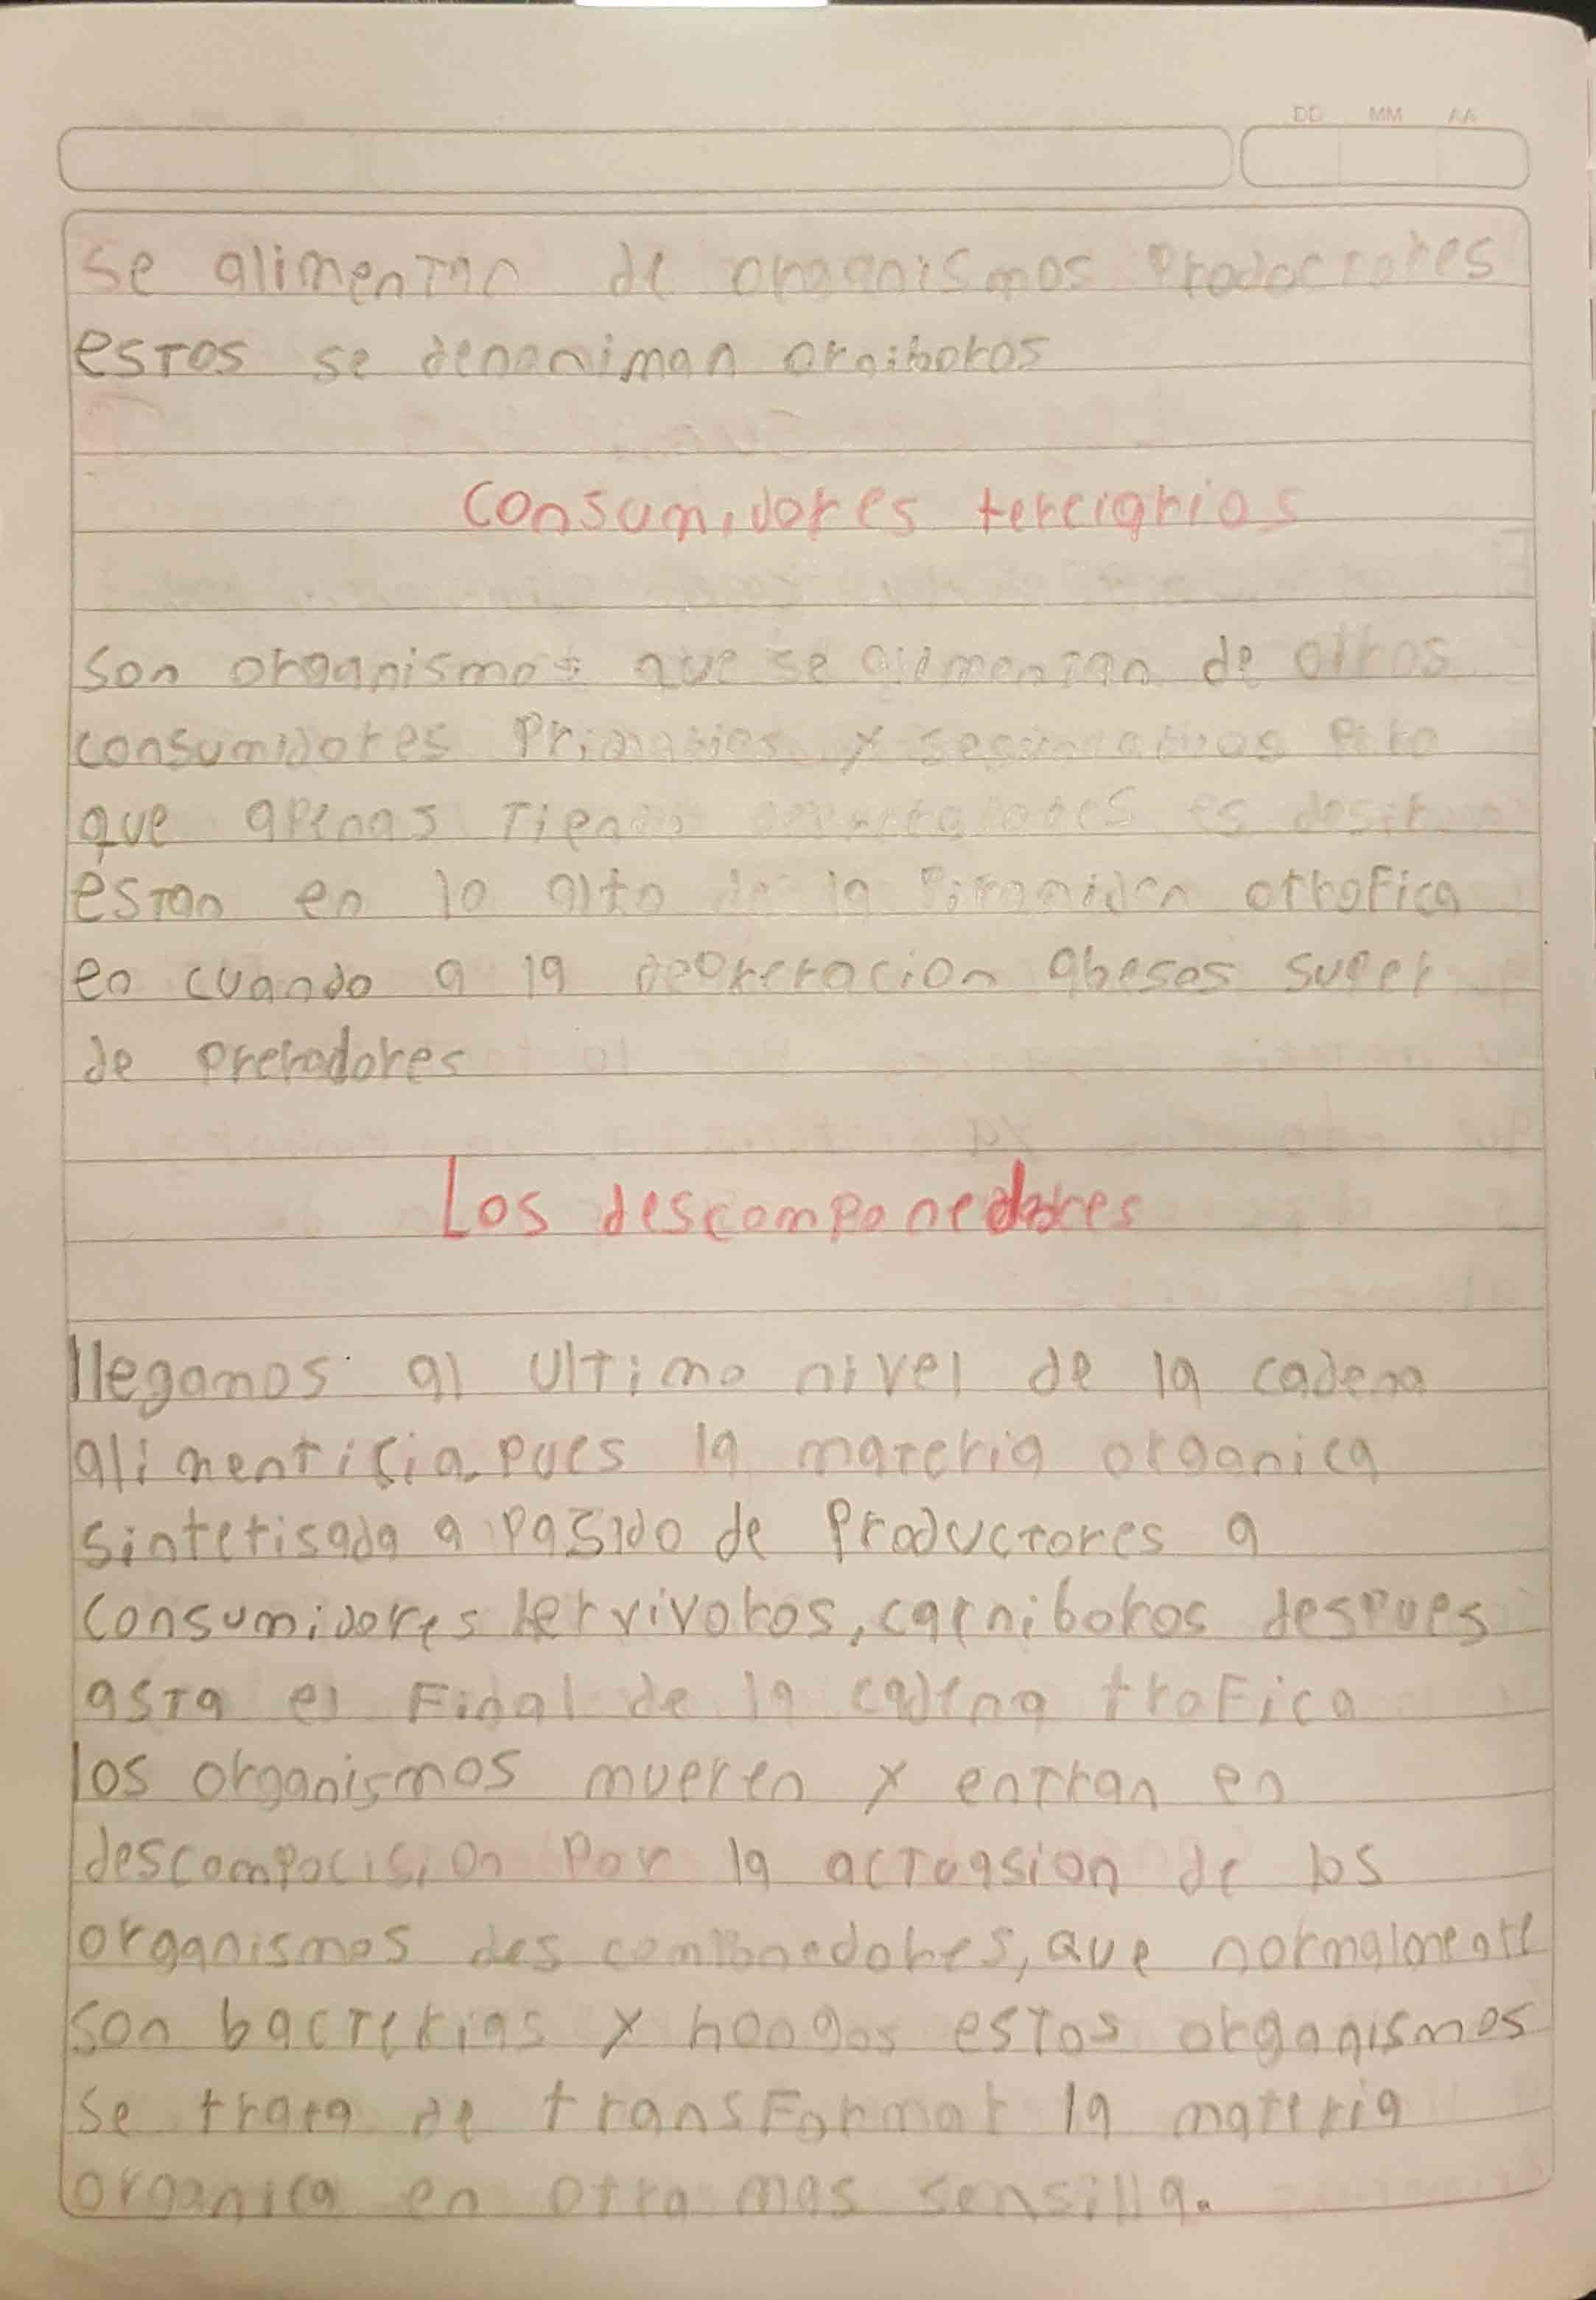 DD MM AA
se alimentan de organismos Prodoctores
estos se denoniman oraiboros
consumidores terciarios
son organismos que se alimentan de otros
consumidores Primarios y Pero
que apenas Tienen es desir
estan en lo alto de la Piramiden otrofica
en cuando a la depreracion abeses super
de preradores
Los descomponedores
llegamos al ultimo nivel de la cadena
alimenticia. pues la materia organica
sintetisada a pasado de Productores a
consumidores hervivoros, carniboros despues
asta el Final de la cadena troFica
los organismos mueren y entran en
descompocision Por la actuasion de los
organismos des componedores, que normalmente
son bacterias y hongos estos organismos
se trata de transFormar la materia
organica en otra mas sensilla.